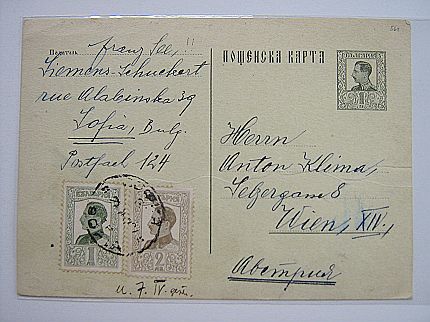 Податель
Franz See,
Siemens-Schuckert
rue Alabinska 39
Sofia, Bulg.
Postfach 124
ПОЩЕНСКА КАРТА
БЪЛГАРИЯ
1
Herrn
Anton Klima,
Selzergasse 8
Wien, XIV.,
Австрия
БЪЛГАРИЯ
1
БЪЛГАРИЯ
2